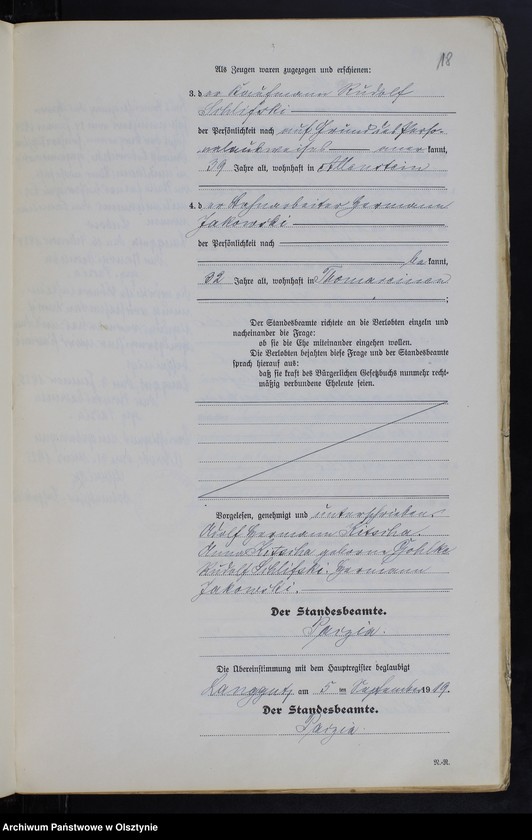 18
Als Zeugen waren zugezogen und erschienen:
3. der Kaufmann Rudolf
Schlifski
der Persönlichkeit nach auf Grund des Perso-
nalausweises aner kannt,
39 Jahre alt, wohnhaft in Allenstein
4. der Bahnarbeiter Hermann
Jakowski
der Persönlichkeit nach
be kannt,
32 Jahre alt, wohnhaft in Thomareinen
;
Der Standesbeamte richtete an die Verlobten einzeln und
nacheinander die Frage:
ob sie die Ehe miteinander eingehen wollen.
Die Verlobten bejahten diese Frage und der Standesbeamte
sprach hierauf aus:
daß sie kraft des Bürgerlichen Gesetzbuchs nunmehr recht-
mäßig verbundene Eheleute seien.
Vorgelesen, genehmigt und unterschrieben.
Adolf Hermann Kitscha.
Anna Kitscha geborene Pohlke
Rudolf Schlifski. Hermann
Jakowski.
Der Standesbeamte.
Parzia.
Die Übereinstimmung mit dem Hauptregister beglaubigt
Langgut, am 5 ten September 1919.
Der Standesbeamte.
Parzia.
N.-R.
Archiwum Państwowe w Olsztynie